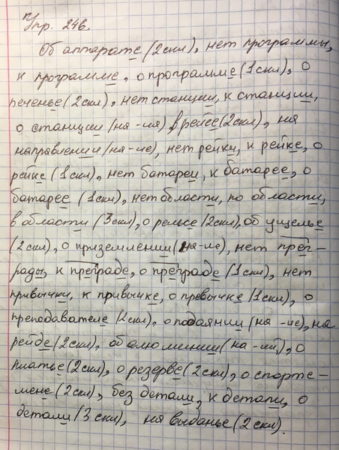 Упр. 246.
Об аппарате (2скл), нет программы,
к программе, о программе (1скл), о
печенье (2скл), нет станции, к станции,
о станции (на -ия) в рейсе (2скл), на
направлении (на -ие), нет рейки, к рейке, о
рейке (1скл), нет батареи, к батарее, о
батарее (1скл), нет области, по области,
в области (3скл), о рельсе (2скл), об ущелье
(2скл), о приземлении (на -ие), нет прег-
рады, к преграде, о преграде (1скл), нет
привычки, к привычке, о привычке (1скл), о
преподавателе (2скл), о подаянии (на -ие), на
рейде (2скл), об алюминии (на -ий), о
платье (2скл), о резерве (2скл), о спортс-
мене (2скл), без детали, к детали, о
детали (3скл), на выданье (2скл).